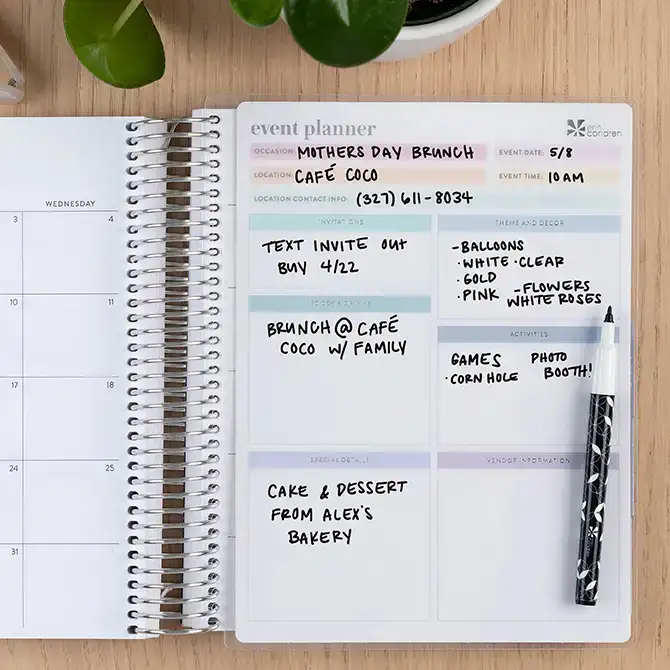 event planner
erin
condren
OCCASION: MOTHERS DAY BRUNCH
EVENT DATE: 5/8
LOCATION: CAFÉ COCO
EVENT TIME: 10 AM
LOCATION CONTACT INFO: (327) 611-8034
INVITATIONS
TEXT INVITE OUT
BUY 4/22
THEME AND DECOR
-BALLOONS
·WHITE ·CLEAR
·GOLD
·PINK -FLOWERS
WHITE ROSES
FOODS & DRINKS
BRUNCH @ CAFÉ
COCO W/ FAMILY
ACTIVITIES
GAMES PHOTO
·CORN HOLE BOOTH!
SPECIAL DETAILS
CAKE & DESSERT
FROM ALEX'S
BAKERY
VENDOR INFORMATION
WEDNESDAY
3 4
10 11
17 18
24 25
31